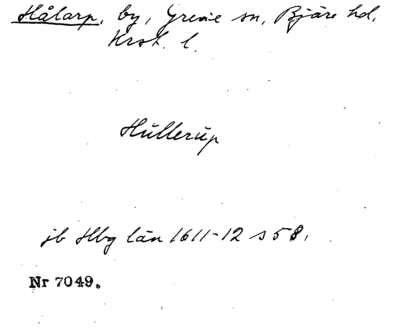 Hålarp, by, Grevie sn, Bjäre hd,
Krst. l.
Hüllerüp
jb Hbg län 1611-12 s 58.
Nr 7049.